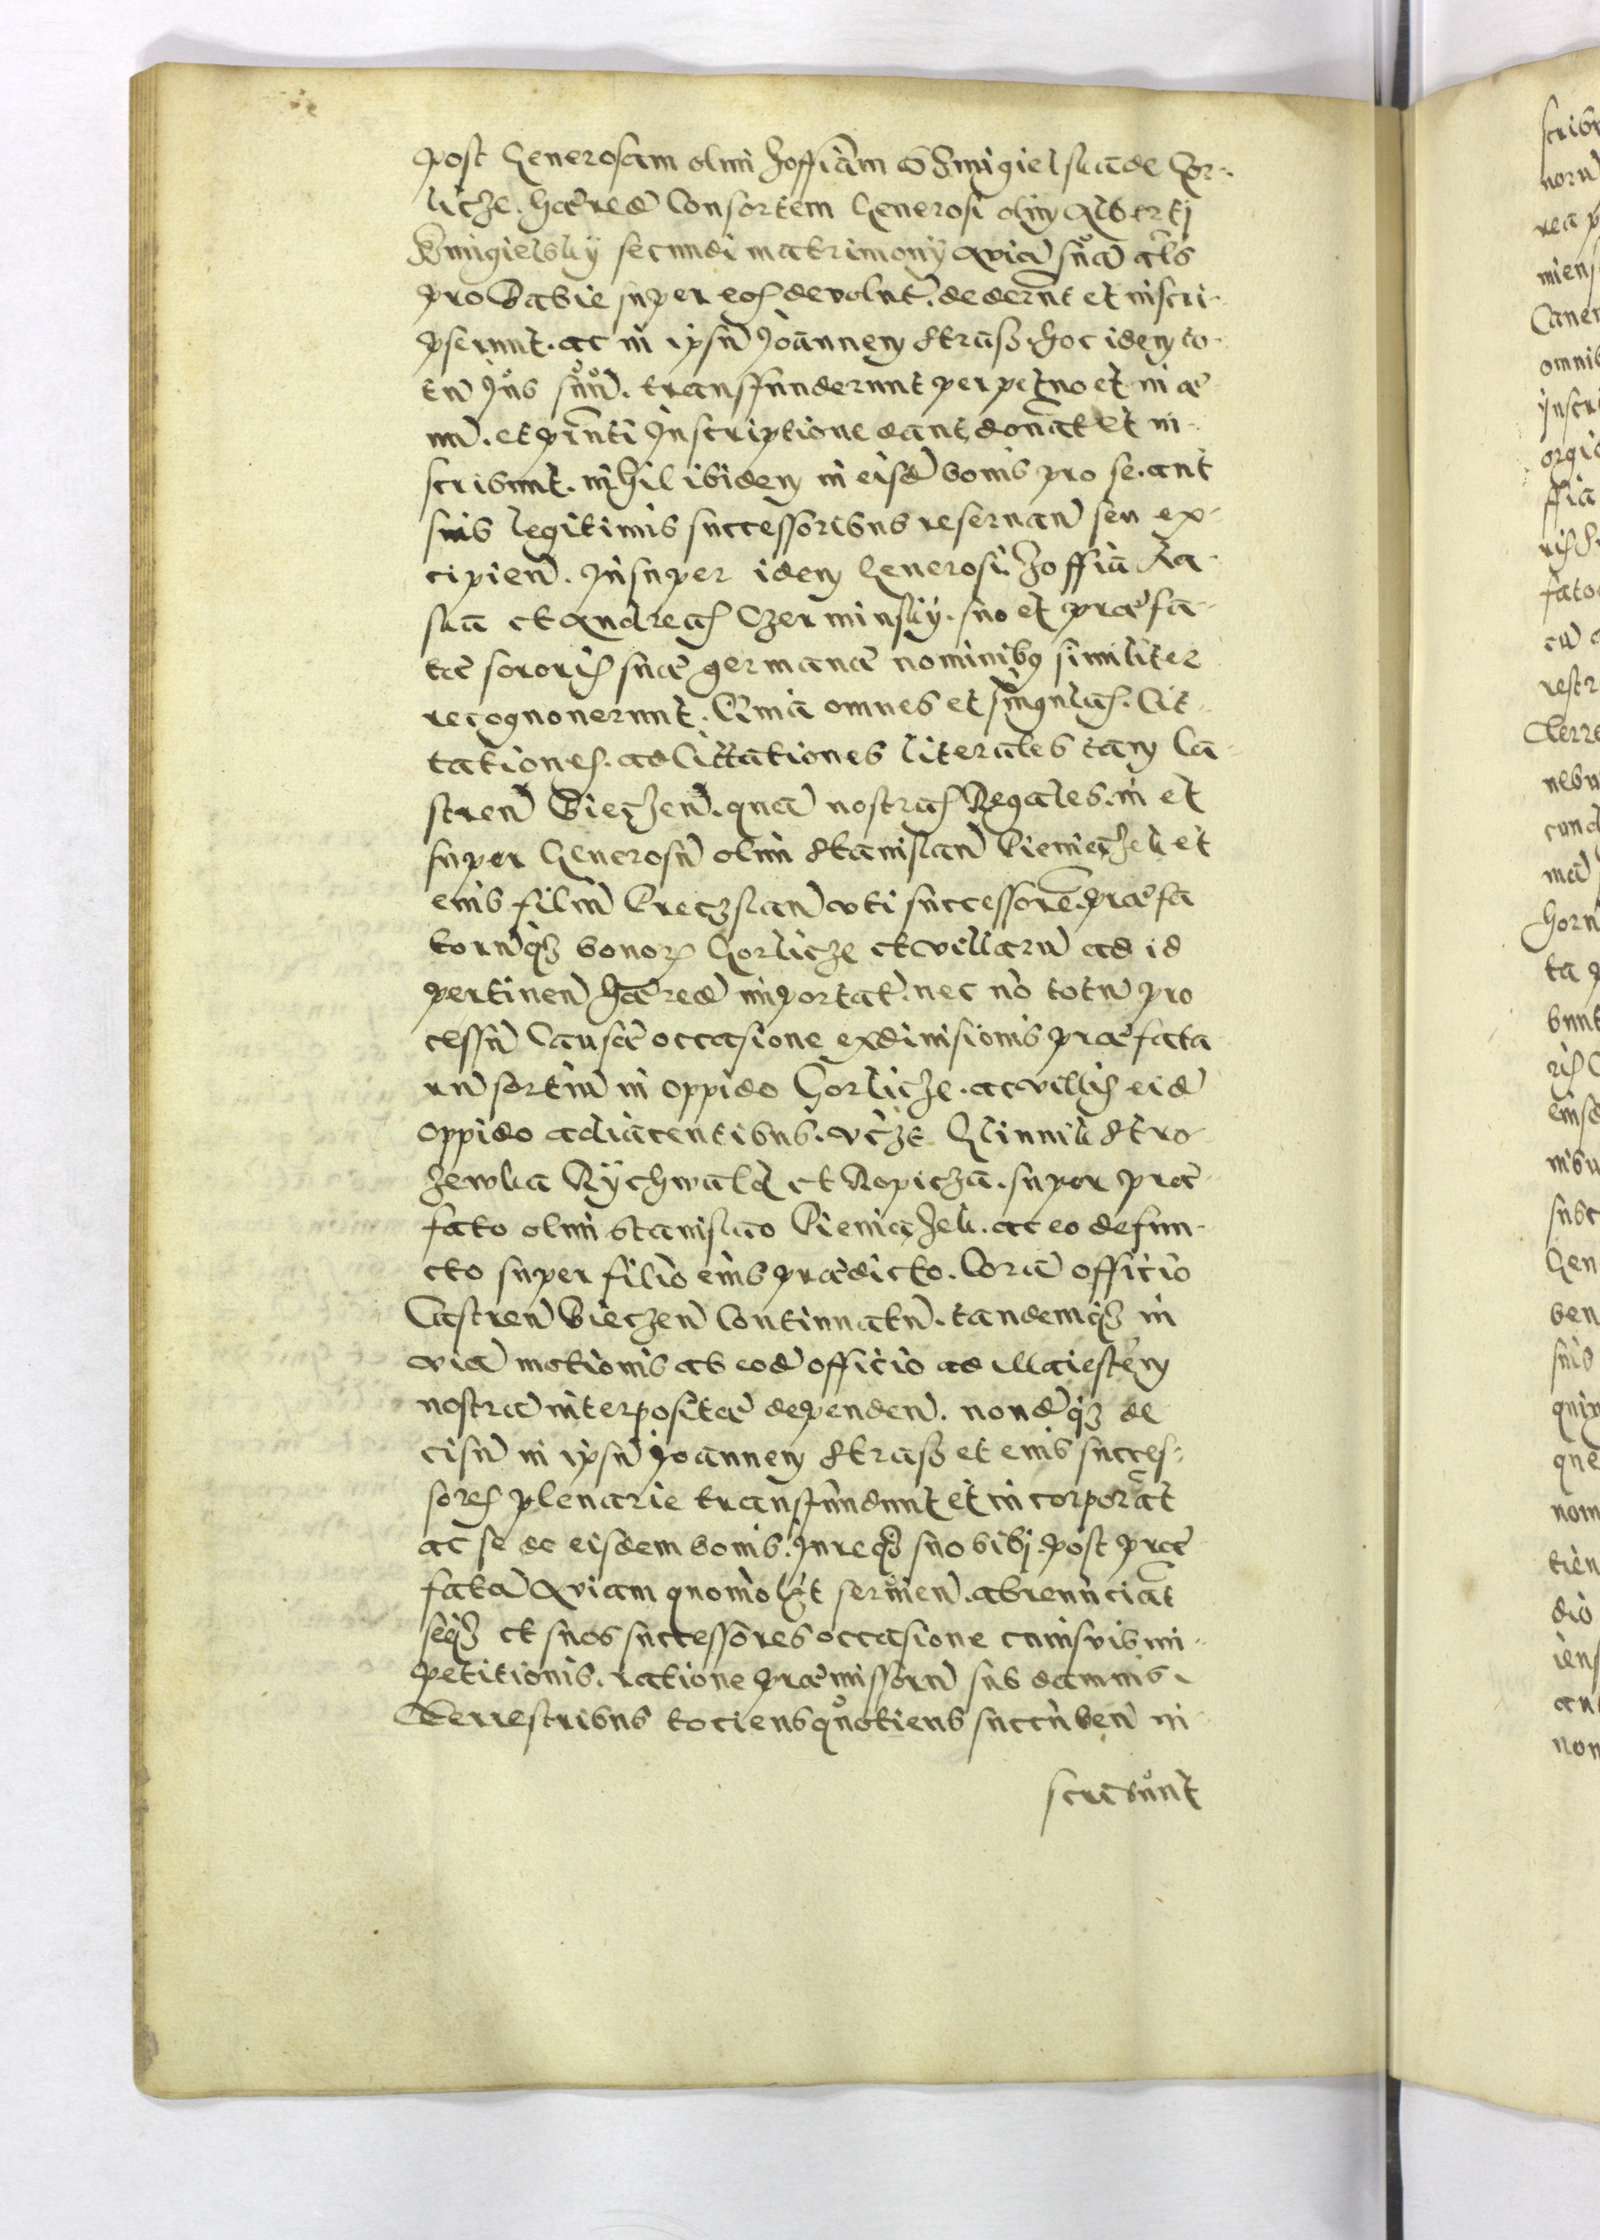 post Generosam olim Zoffiam Szmigielska de Gor-
licze. hæred Consortem Generosi olim Alberti
Szmigielskÿ secundi matrimonÿ Auiā suā als
pro Babie super eos devolut. dederūt et inscri-
pserunt. ac in ipsū Joannem Strasz. hoc idem to-
tū Jus suū. transfunderunt perpetuo et in æ-
nū. et pñti Inscriptione dant, donāt et in-
scribunt. nihil ibidem in eisd bonis pro se. aut
suis legitimis successoribus reseruan seu ex-
cipien. Insuper idem Generosi. Zoffia Ka-
ska et Andreas Czerminskÿ. suo et præfa-
tæ sororis suæ germanæ nominibus similiter
recognouerunt. Quia omnes et singulas. Cit-
tationes. adcittationes literales tam Ca-
stren Bieczen. quā nostras Regales. in et
super Generosū olim Stanislaū Pieniążek et
eius filiū Preczslaū vti successorē. præfa-
torūqȝ bonor Gorlicze et villarū ad id
pertinen hæred importat. nec nō totū pro-
cessū Causæ occasione exdiuisionis præfata-
rū sortiū in oppido Gorlicze. ac villis eid
oppido adiacentibus. vtzt Glinnik Stro-
zewka Rÿchwałd et Ropicza. super præ-
fato olim Stanislao Pieniążek. ac eo defun-
cto super filio eius prædicto. Corā officio
Castren Bieczen Continuatū. tandemqȝ in
viā motionis ab eod officio ad Maiestem
nostrā interpositæ dependen. nondqȝ de-
cisū in ipsū Joannem Strasz et eius succes-
sores plenarie transfundunt et incorporāt
ac se de eisdem bonis. Jureqȝ suo sibi post præ-
fatā Auiam quomolt seruien. abrenunciāt
seqȝ et suos successores occasione cuiusvis im-
petitionis. ratione præmissorū sub damnis
Terrestribus tociens quotiens succuben in-
scribunt